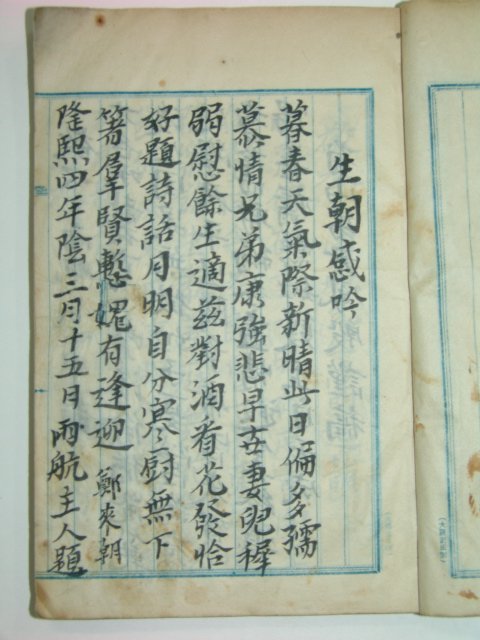 生朝感吟
暮春天氣際新晴此日偏多孺
慕情兄弟康強悲早妻兒穉
弱慰餘生適茲對酒看花發恰
好題詩話月明自分寒厨無下
箸羣賢慙媿有逢迎 鄭來朝
隆熙四年陰三月十五日雨航主人題